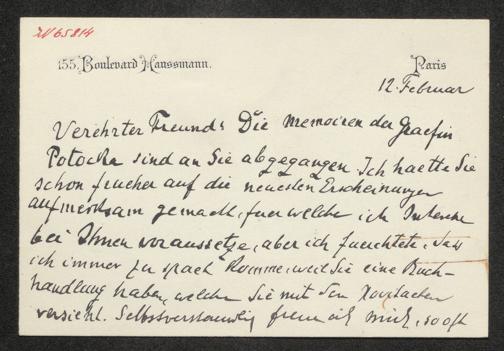 IN 65814
155, Boulevard Haussmann.
Paris
12. Februar
Verehrter Freund: Die Memoiren der Graefin
Potocka sind an Sie abgegangen. Ich haette Sie
schon frueher auf die neuesten Erscheinungen
aufmerksam gemacht, fuer welche ich Interesse
bei Ihnen voraussetze, aber ich fuerchtete, dass
ich immer zu spaet komme, weil Sie eine Buch-
handlung haben, welche Sie mit den Novitaeten
versieht. Selbstverstaendlich freue ich mich, so oft